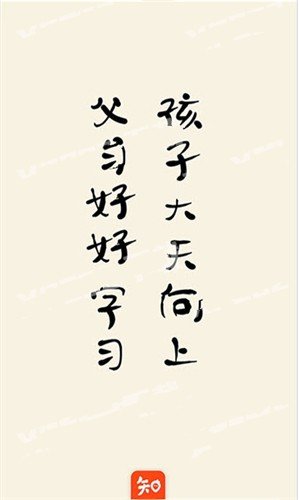 孩子大天向上
父母好好字习
知